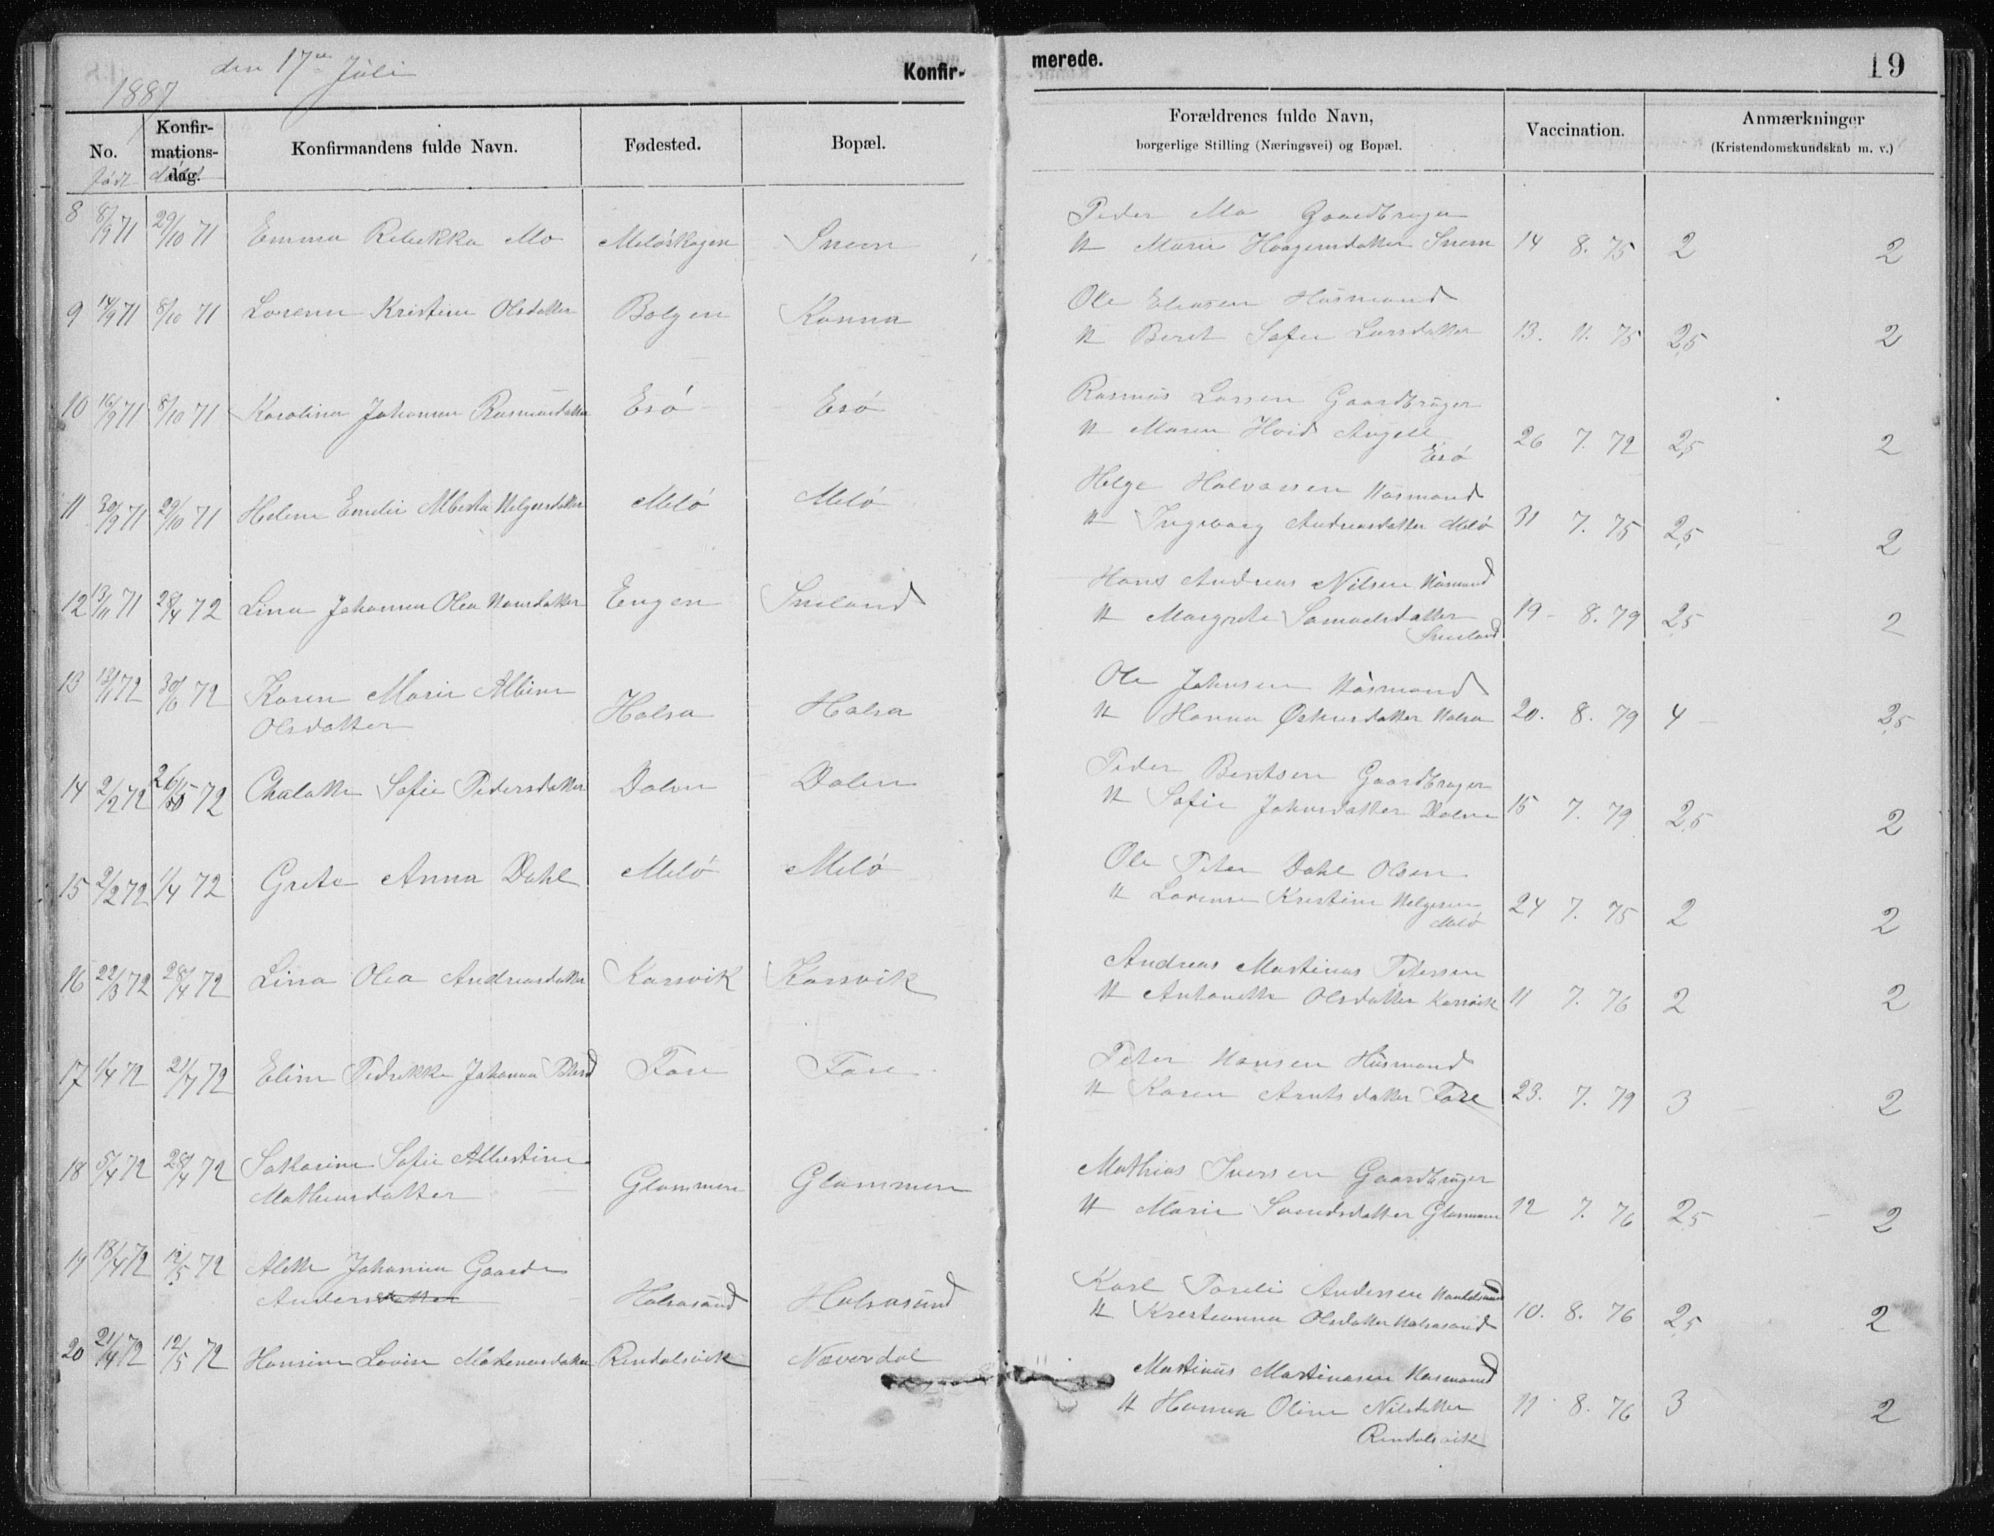 1887 den 17de Juli
Konfirmerede.
19
No. født
Konfirmationsdag. døbt
Konfirmandens fulde Navn.
Fødested.
Bopæl.
Forældrenes fulde Navn,
borgerlige Stilling (Næringsvei) og Bopæl.
Vaccination.
Anmærkninger
(Kristendomskundskab m. v.)
Peder Mo Gaardbruger
8 8/9 71 29/10 71 Emma Rebekka Mo Meløskagen Sneen
Marie Haagensdatter Sneen 14 8. 75 2 2
Ole Eliasen Husmand
9 14/9 71 8/10 71 Lorense Kristine Olsdatter Bolgen Kanna
Beret Sofie Larsdatter 13. 11. 75 2,5 2
Rasmus Larsen Gaardbruger
10 16/9 71 8/10 71 Karoline Johanna Rasmusdatter Esø Esø
Maren Hvid Angell 26 7. 72 2,5 2
Esø
Helge Halvorsen Husmand
11 30/9 71 29/10 71 Helene Emelie Alberta Helgesdatter Melø Melø
Ingeborg Andreasdatter Melø 31 7. 75 2,5 2
Hans Andreas Nilsen Husmand
12 13/11 71 28/4 72 Lina Johanna Olea Hansdatter Engen Sneland
Margrete Samuelsdatter 19 - 8. 79 2,5 2
Sneland
Ole Johnsen Husmand
13 13/1 72 30/6 72 Karen Marie Albine
Olsdatter Halsa Halsa
Hanna Halsa 20. 8. 79 4 2,5
Peder Bentsen Gaardbruger
14 2/2 72 26/5 72 Sofie Pedersdatter Dalen Dalen
Sofie Johnsdatter Dalen 15 7. 79 2,5 2
Ole Peter Dahl Olsen
15 2/2 72 1/4 72 Grete Anna Dahl Melø Melø
Lorense Kristine Helgesen 24 7. 75 2 2
Melø
Andreas Martinus Petersen
16 22/3 72 28/4 72 Lina Olea Andreasdatter Karsvik Karsvik
Antonette Olsdatter Karsvik 11 7. 76 2 2
Peter Hansen Husmand
17 1/4 72 21/7 72 Eline Pedrikke Johanna Fore Fore
Karen Arntsdatter Fore 23. 7. 79 3 2
Mathias Iversen Gaardbruger
18 5/4 72 28/4 72 Sofie Albertine
Mathiasdatter Glommen Glommen
Marie Svendsdatter Glommen 12 7. 76 2,5 2
19 18/4 72 12/5 72 Alette Johanna Gaarder
Karl Andersen Handelsmand
Andersdatter Halsasund Halsasund
Kristianna Olsdatter Halsasund 10. 8. 76 2,5 2
20 21/4 72 12/5 72 Hansine Lovise Rendalsvik Næverdal
Martinus Martinusen Husmand
Hanna Oline Nilsdatter 11 8. 76 3 2
Rendalsvik